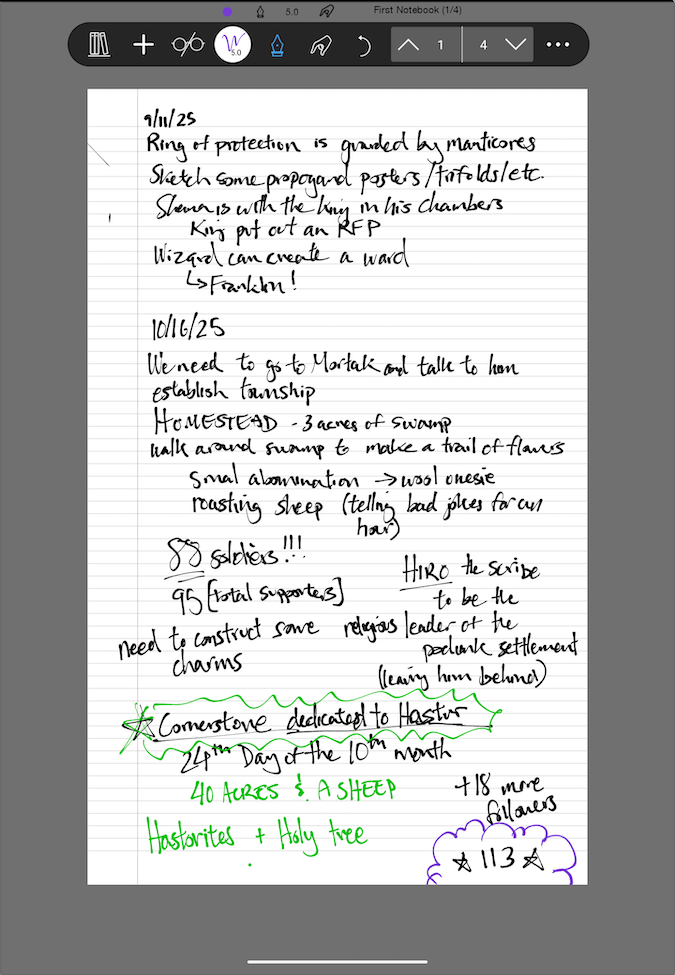 5.0
First Notebook (1/4)
5.0
1
4
9/11/25
Ring of protection is guarded by manticores
Sketch some propogand posters/trifolds/etc.
Shana is with the king in his chambers
King put out an RFP
Wizard can create a ward
↳Franklin!
10/16/25
We need to go to Mortak and talk to him
establish township
HOMESTEAD - 3 acres of swamp
walk around swamp to make a trail of flowers
Small abomination → wool onesie
roasting sheep (telling bad jokes for an
hour)
88 soldiers!!!
95 [total supporters]
need to construct some
charms
HIRO the scribe
to be the
religious leader of the
podunk settlement
(leaving him behind)
☆ Cornerstone dedicated to Hastur
24th Day of the 10th month
40 ACRES & A SHEEP
+18 more
followers
Hastorites + Holy tree
☆ 113 ☆